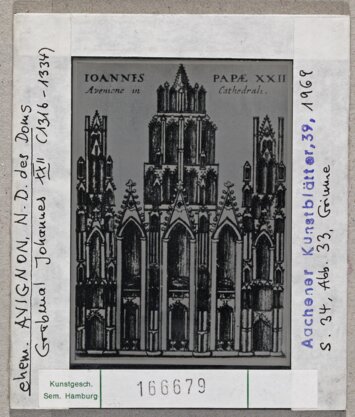 ehem. AVIGNON, N. D. des Doms
Grabmal Johannes XXII (1316-1334)
IOANNES PAPÆ XXII
Avenione in Cathedrali.
Aachener Kunstblätter, 39, 1969
S. 34, Abb. 33, Grimme
Kunstgesch.
Sem. Hamburg
166679